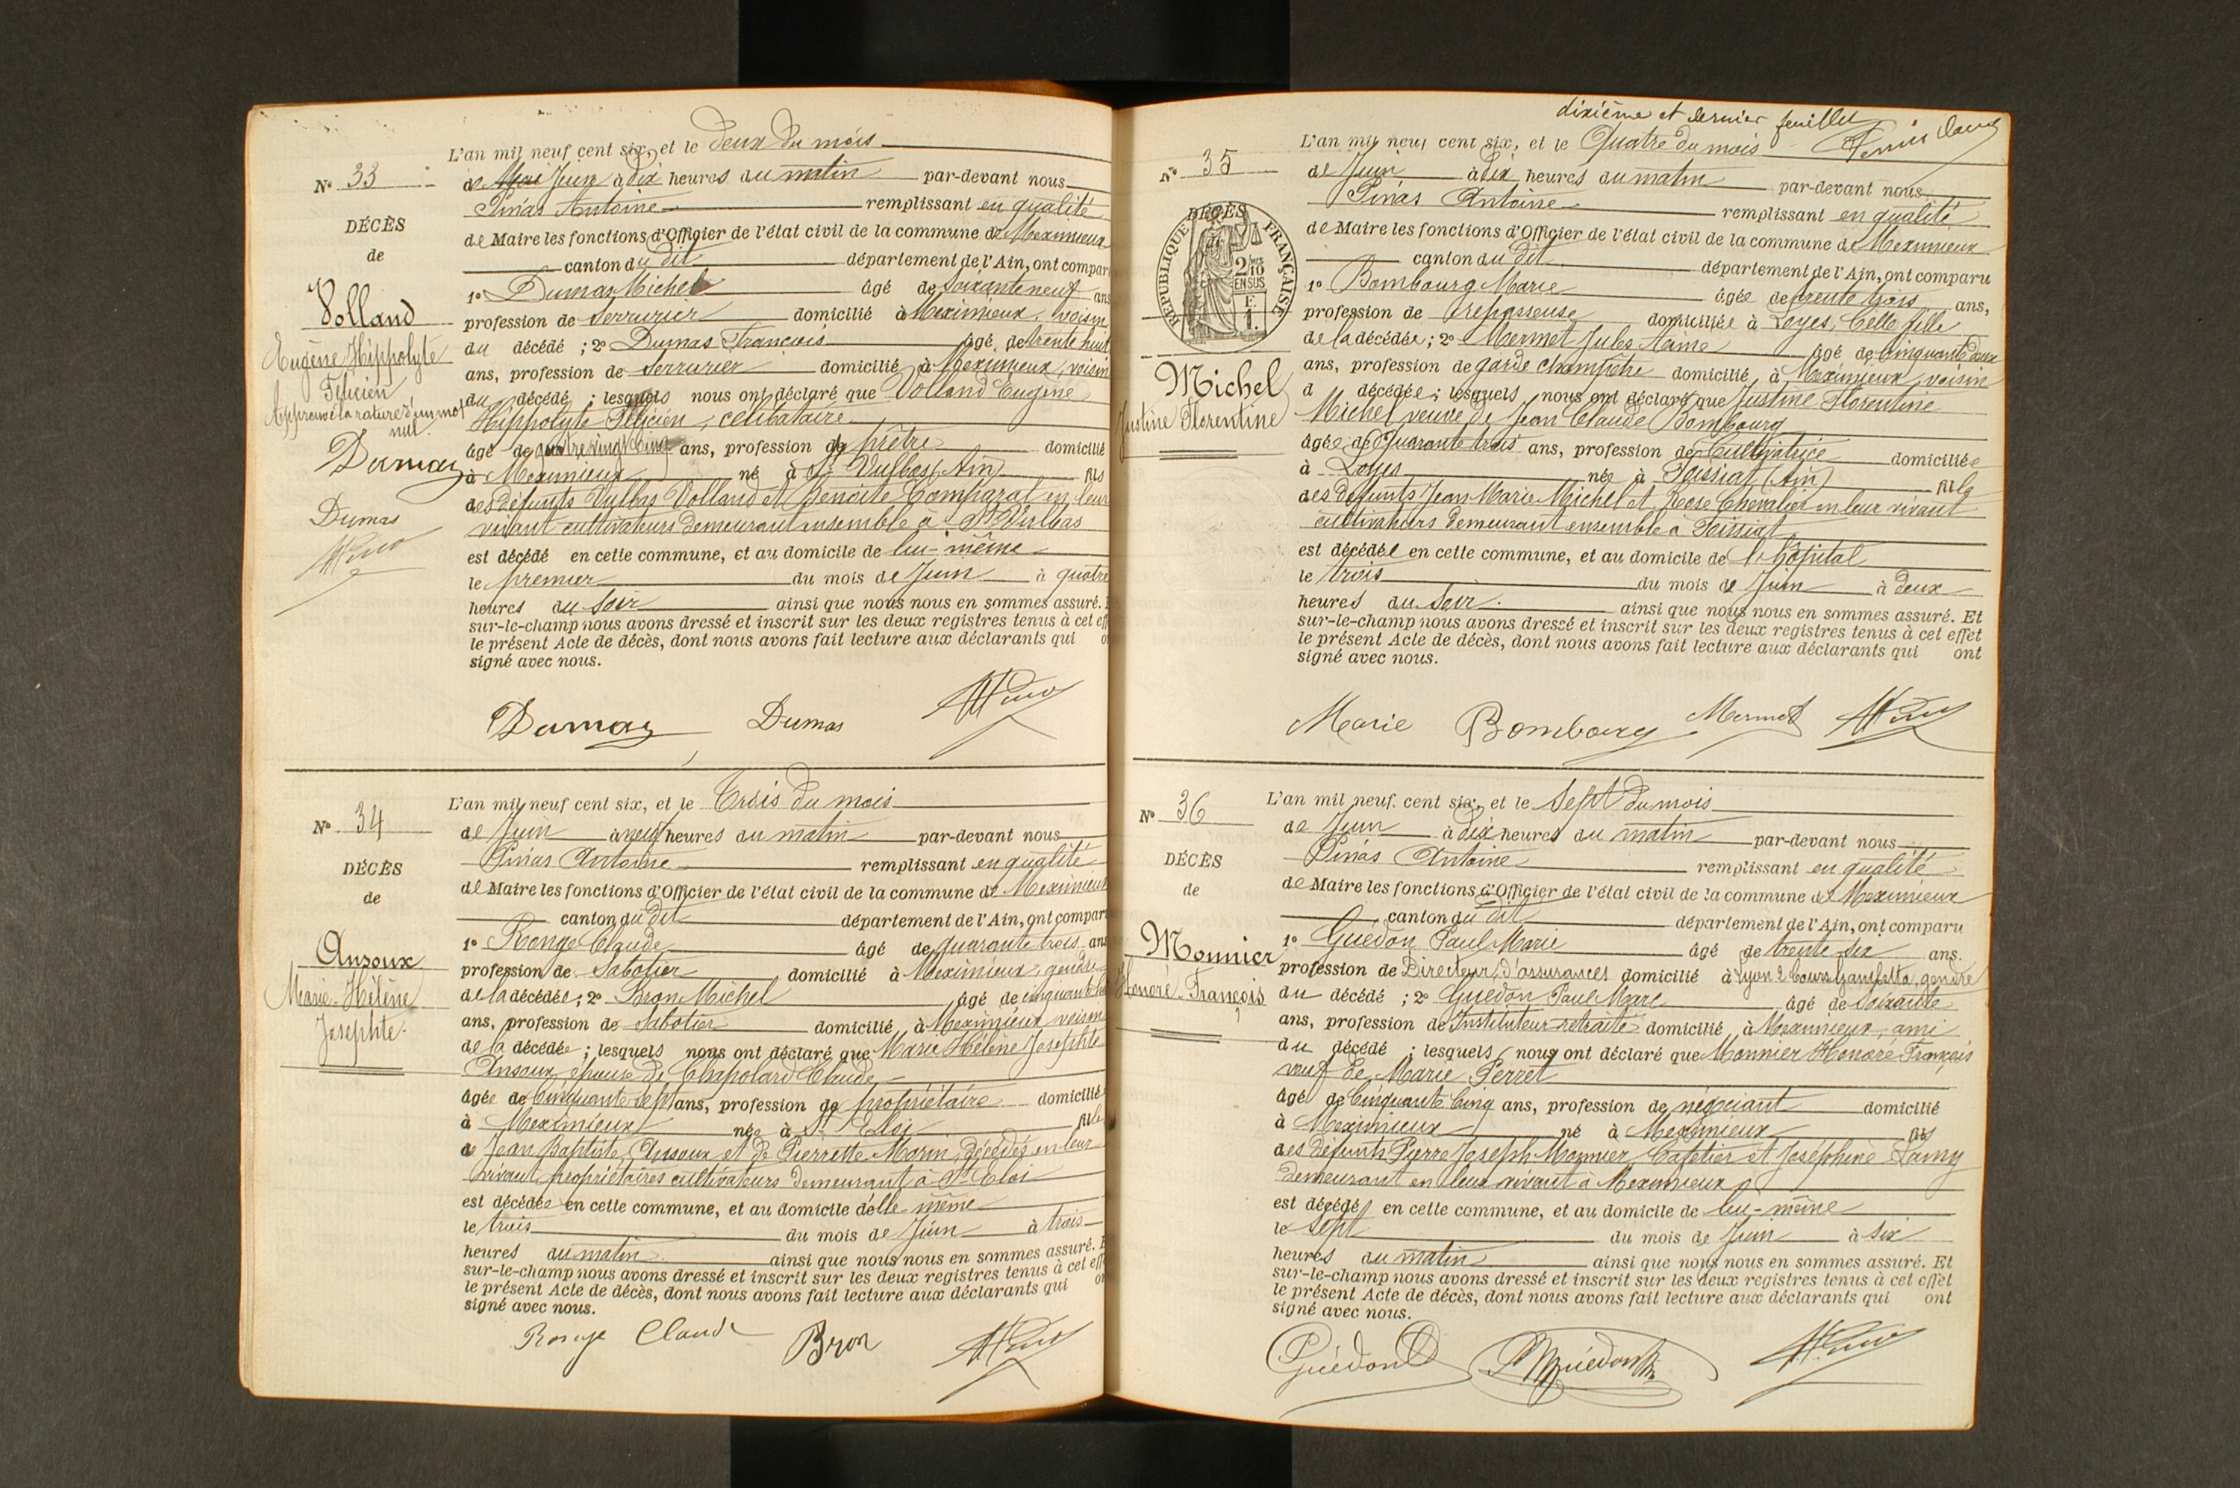 L'an mil neuf cent six, et le deux du mois
N° 33
de Mai Juin à dix heures du matin par-devant nous
Pinas Antoine remplissant en qualité
DÉCÈS
de Maire les fonctions d'Officier de l'état civil de la commune de Meximieux
de
canton du dit département de l'Ain, ont compar
1° Dumas Michel âgé de soixante neuf ans
Volland
profession de Serrurier domicilié à Meximieux, voisin
Eugène Hippolyte
du décédé ; 2° Dumas François âgé de trente huit
Félicien
ans, profession de Serrurier domicilié à Meximieux, voisin
Approuvé la rature d'un mot
nul.
du décédé ; lesquels nous ont déclaré que Volland Eugène
Hippolyte Félicien, célibataire
Dumas
âgé de quatre vingt cinq ans, profession de prêtre domicilié
à Meximieux né à St Vulbas (Ain) fils
des défunts Vulbas Volland et Benoîte Comparat en leur
Dumas
vivant cultivateurs demeurant ensemble à St Vulbas
est décédé en cette commune, et au domicile de lui-même
le premier du mois de Juin à quatre
heures du soir ainsi que nous nous en sommes assuré. E
sur-le-champ nous avons dressé et inscrit sur les deux registres tenus à cet eff
le présent Acte de décès, dont nous avons fait lecture aux déclarants qui on
signé avec nous.
Dumas Dumas
L'an mil neuf cent six, et le Trois du mois
N° 34
de Juin à neuf heures du matin par-devant nous
Pinas Antoine remplissant en qualité
DÉCÈS
de Maire les fonctions d'Officier de l'état civil de la commune de Meximieux
de
canton du dit département de l'Ain, ont compar
Ansoux
1° Ronge Claude âgé de quarante trois ans
profession de Sabotier domicilié à Meximieux, gendre
Marie-Hélène
de la décédée ; 2° Bron Michel âgé de cinquante
Josephte.
ans, profession de Sabotier domicilié à Meximieux, voisin
de la décédée ; lesquels nous ont déclaré que Marie Hélène Josephte
Ansoux, épouse de Chapolard Claude,
âgée de Cinquante sept ans, profession de propriétaire domicilié
à Meximieux née à St Eloi fille
de Jean Baptiste Ansoux et de Pierrette Marin, décédés en leur
vivant propriétaires cultivateurs demeurant à St Eloi
est décédée en cette commune, et au domicile d'elle même
le trois du mois de Juin à trois
heures du matin ainsi que nous nous en sommes assuré. E
sur-le-champ nous avons dressé et inscrit sur les deux registres tenus à cet eff
le présent Acte de décès, dont nous avons fait lecture aux déclarants qui on
signé avec nous.
Ronge Claude Bron
dixième et dernier feuillet
L'an mil neuf cent six, et le Quatre du mois
N° 35
de Juin à Dix heures du matin par-devant nous
Pinas Antoine remplissant en qualité
DÉCÈS
RÉPUBLIQUE FRANÇAISE
2/10
EN SUS
F.
1.
de Maire les fonctions d'Officier de l'état civil de la commune de Meximieux
canton du dit département de l'Ain, ont comparu
1° Bombourg Marie âgée de trente trois ans,
profession de repasseuse domiciliée à Loyes, belle fille
de la décédée ; 2° Mermet Jules Aimé âgé de cinquante deux
Michel
ans, profession de garde champêtre domicilié à Meximieux, voisin
Justine Florentine
d décédée ; lesquels nous ont déclaré que Justine Florentine
Michel, veuve de Jean Claude Bombourg
âgée de Quarante trois ans, profession de Cultivatrice domiciliée
à Loyes née à Poissiat (Ain) fille
des défunts Jean Marie Michel et Rose Chevalier en leur vivant
cultivateurs demeurant ensemble à Poissiat
est décédée en cette commune, et au domicile de l'hôpital
le trois du mois de Juin à deux
heures du soir. ainsi que nous nous en sommes assuré. Et
sur-le-champ nous avons dressé et inscrit sur les deux registres tenus à cet effet
le présent Acte de décès, dont nous avons fait lecture aux déclarants qui ont
signé avec nous.
Marie Bombourg Mermet
L'an mil neuf cent six, et le Sept du mois
N° 36
de Juin à Dix heures du matin par-devant nous
Pinas Antoine remplissant en qualité
DÉCÈS
de Maire les fonctions d'Officier de l'état civil de la commune de Meximieux
de
canton du dit département de l'Ain, ont comparu
Monnier
1° Guedon Paul Marie âgé de trente six ans.
profession de Directeur d'assurances domicilié à Lyon 2 Cours Gambetta, gendre
Honoré-François
du décédé ; 2° Guedon Paul Marc âgé de soixante
ans, profession de Instituteur retraité domicilié à Meximieux, ami
du décédé ; lesquels nous ont déclaré que Monnier Honoré François
veuf de Marie Perret
âgé de Cinquante Cinq ans, profession de négociant domicilié
à Meximieux né à Meximieux fils
des défunts Pierre Joseph Monnier, Cafetier et Joséphine Lamy
demeurant en leur vivant à Meximieux
est décédé en cette commune, et au domicile de lui-même
le Sept du mois de Juin à six
heures du matin ainsi que nous nous en sommes assuré. Et
sur-le-champ nous avons dressé et inscrit sur les deux registres tenus à cet effet
le présent Acte de décès, dont nous avons fait lecture aux déclarants qui ont
signé avec nous.
Guédon Guédon